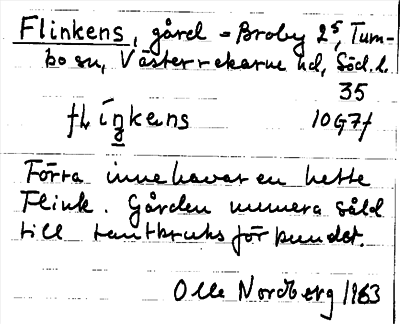 Flinkens, gård = Broby 2⁵, Tum-
bo sn, Västerrekarne hd, Söd. l.
35
fliŋkens 10G7f
Förra innehavaren hette
Flink. Gården numera såld
till Lantbruksförbundet.
Olle Nordberg 1963